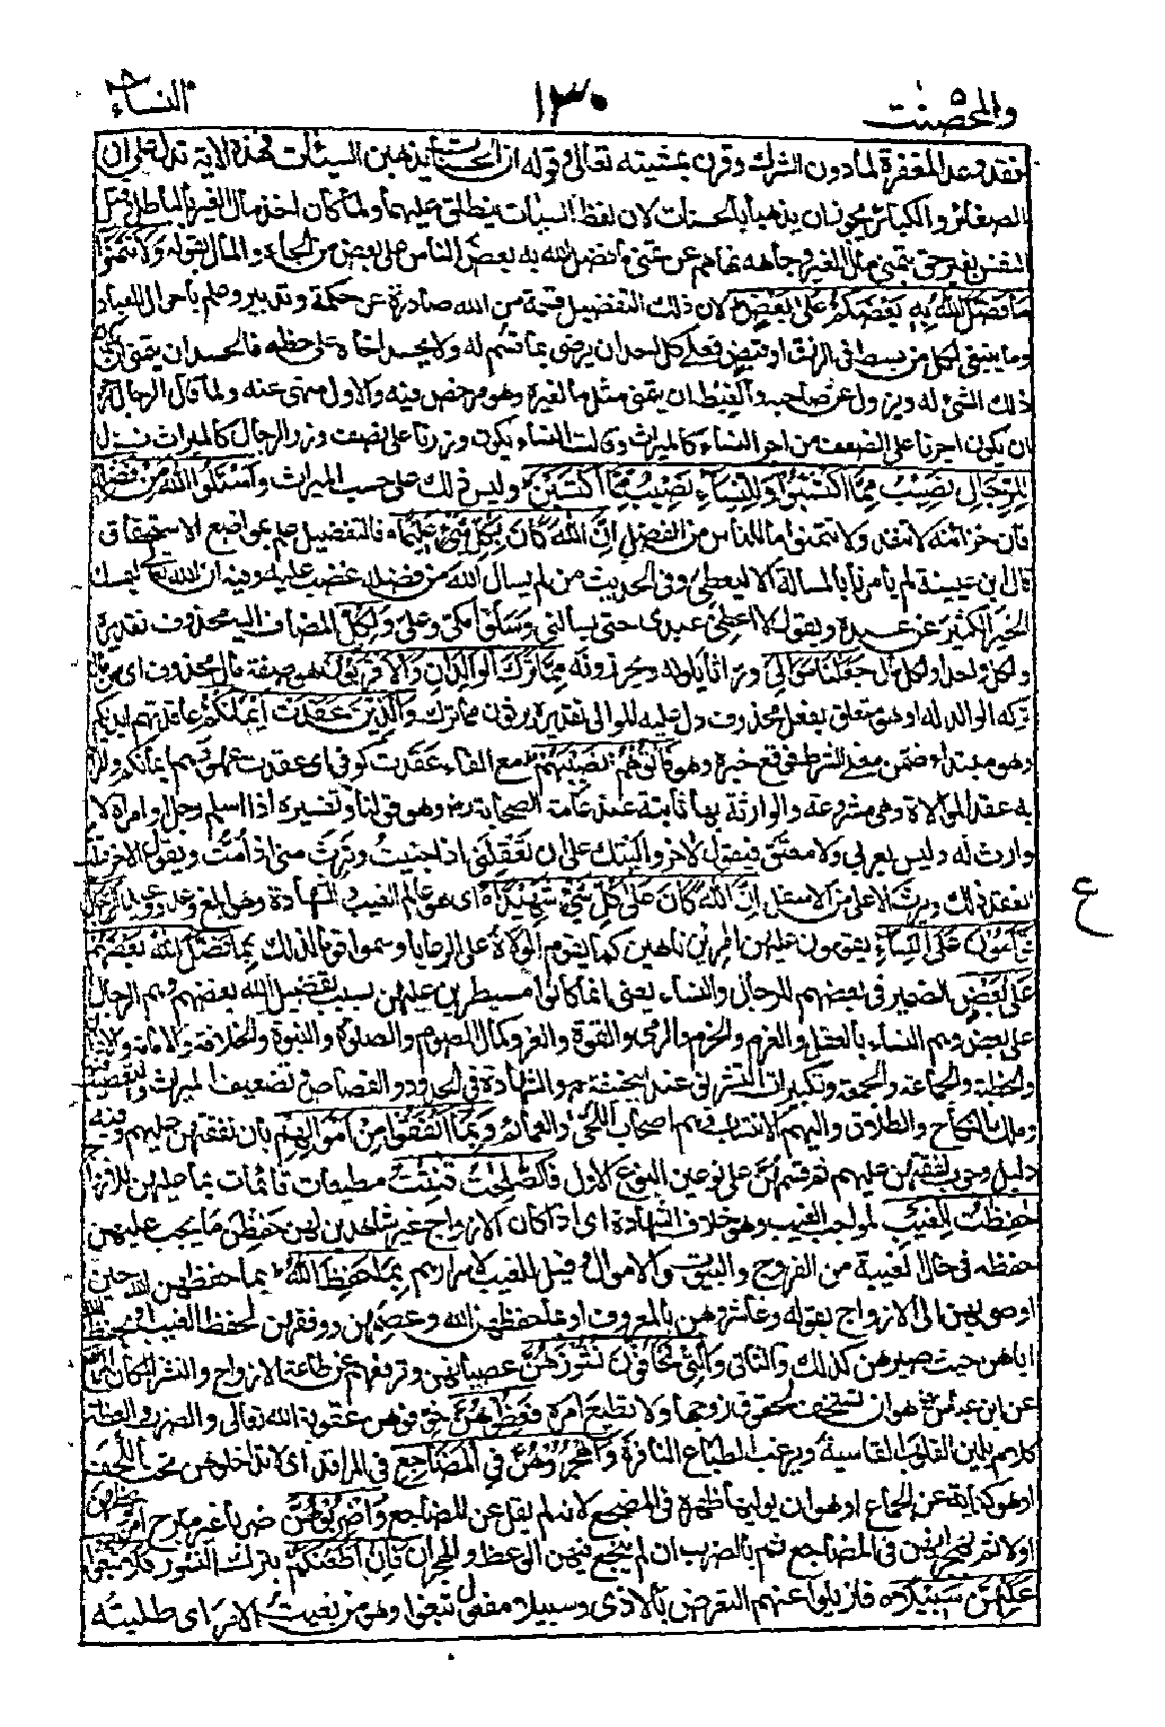 والمحصنت ١٣٠ النساء
فقد وعد المغفرة لما دون الشرك وقرن بمشيته تعالى وقوله ان الحسنات يذهبن السيئات فهذه الاية تدل على ان
الصغائر والكبائر يجوز ان يذهبا بالحسنات لان لفظ السيئات ينطلق عليهما ولما كان اخذ مال الغير بالباطل وقتل
النفس بغير حق بتمنى مال الغير وجاهه نهاهم عن تمنى ما فضل الله به بعض الناس على بعض من الجاه والمال بقوله وَلَا تَتَمَنَّوْا
مَا فَضَّلَ اللهُ بِهِ بَعْضَكُمْ عَلٰى بَعْضٍ لان ذلك التفضيل قسمة من الله صادرة عن حكمة وتدبير وعلم باحوال العباد
وما ينبغى لكل من بسط فى الرزق او قبض فعلى كل احد ان يرضى بما قسم له ولا يحسد اخاه على حظه فالحسد ان يتمنى ان يكون
ذلك الشئ له ويزول عن صاحبه والغبطة ان يتمنى مثل ما لغيره وهو مرخص فيه والاول منهى عنه ولما قال الرجال نرجو
ان يكون اجرنا على الضعف من اجر النساء كالميراث وقالت النساء يكون وزرنا على نصف وزر الرجال كالميراث نزل
لِلرِّجَالِ نَصِيْبٌ مِّمَّا اكْتَسَبُوْا وَلِلنِّسَآءِ نَصِيْبٌ مِّمَّا اكْتَسَبْنَ وليس ذلك على حسب الميراث وَاسْئَلُوا اللهَ مِنْ فَضْلِهِ
فان خزائنه لا تنفد ولا تتمنوا ما للناس من الفضل اِنَّ اللهَ كَانَ بِكُلِّ شَىْءٍ عَلِيْمًا فالتفضيل عن علم بمواضع الاستحقاق
قال ابن عيينة لم يامرنا بالمسالة الا ليعطى وفى الحديث من لم يسال الله من فضله غضب عليه وفيه ان الله تعالى ليمسك
الخير الكثير عن عبده ويقول لا اعطى عبدى حتى يسالنى وَسَلُوا مكى وعلى وَلِكُلٍّ المضاف اليه محذوف تقديره
ولكل احد او لكل مال جَعَلْنَا مَوَالِىَ وراثا يلونه ويحرزونه مِمَّا تَرَكَ الْوَالِدَانِ وَالْاَقْرَبُوْنَ هو صفة مال محذوف اى من مال
تركه الوالدان او هو متعلق بفعل محذوف دل عليه الموالى تقديره يرثون مما ترك وَالَّذِيْنَ عَقَدَتْ اَيْمَانُكُمْ عاقدتهم ايديكم
وهو مبتدا ضمن معنى الشرط فوقع خبره وهو فَاٰتُوْهُمْ نَصِيْبَهُمْ مع الفاء عَقَدَتْ كوفى اى عقدت عهودهم ايمانكم والمراد
به عقد الموالاة وهى مشروعة والوراثة بها ثابتة عند عامة الصحابة رض وهو قولنا وتفسيره اذا اسلم رجل او امراة لا
وارث له وليس بعربى ولا معتق فيقول لاخر واليتك على ان تعقلنى اذا جنيت وترث منى اذا مت ويقول الاخر قبلت
انعقد ذلك ويرث الاعلى من الاسفل اِنَّ اللهَ كَانَ عَلٰى كُلِّ شَىْءٍ شَهِيْدًا اى هو عالم الغيب والشهادة وهو ابلغ وعد ووعيد اَلرِّجَالُ
قَوَّامُوْنَ عَلَى النِّسَآءِ يقومون عليهن امرين ناهين كما يقوم الولاة على الرعايا وسموا قواما لذلك بِمَا فَضَّلَ اللهُ بَعْضَهُمْ
عَلٰى بَعْضٍ الضمير فى بعضهم للرجال والنساء يعنى انما كانوا مسيطرين عليهن بسبب تفضيل الله بعضهم وهم الرجال
على بعض وهم النساء بالعقل والعزم والحزم والرمى والقوة والغزو وكمال الصوم والصلوة والنبوة والخلافة والامامة والاذان
والخطبة والجماعة والجمعة وتكبيرات التشريق عند ابى حنيفة رح والشهادة فى الحدود والقصاص وتضعيف الميراث والتعصيب فيه
وملك النكاح والطلاق واليهم الانتساب وهم اصحاب اللحى والعمائم وَبِمَا اَنْفَقُوْا مِنْ اَمْوَالِهِمْ بان نفقتهن عليهم وفيه
دليل وجوب نفقتهن عليهم ثم قسمهن على نوعين النوع الاول فَالصّٰلِحٰتُ قٰنِتٰتٌ مطيعات قائمات بما عليهن للازواج
حٰفِظٰتٌ لِّلْغَيْبِ لمواجب الغيب وهو خلاف الشهادة اى اذا كان الازواج غير شاهدين لهن حفظن ما يجب عليهن
حفظه فى حال الغيبة من الفروج والبيوت والاموال وقيل للغيب لاسرارهم بِمَا حَفِظَ اللهُ بما حفظهن الله حين
اوصى بهن الى الازواج بقوله وعاشروهن بالمعروف او بما حفظهن الله وعصمهن ووفقهن لحفظ الغيب او بحفظ الله
اياهن حيث صيرهن كذلك والثانى وَالّٰتِىْ تَخَافُوْنَ نُشُوْزَهُنَّ عصيانهن وترفعهن عن طاعة الازواج والنشز المكان المرتفع
عن ابن عباس رض هو ان تستخف بحقوق زوجها ولا تطيع امره فَعِظُوْهُنَّ خوفوهن عقوبة الله تعالى والضرب والعظة
كلام يلين القلوب القاسية ويرغب الطبائع النافرة وَاهْجُرُوْهُنَّ فِى الْمَضَاجِعِ فى المراقد اى لا تداخلوهن تحت اللحف
او هو كناية عن الجماع او هو ان يوليها ظهره فى المضجع لانه لم يقل عن المضاجع وَاضْرِبُوْهُنَّ ضربا غير مبرح امر بوعظهن
اولا ثم بهجرانهن فى المضاجع ثم بالضرب ان لم ينجع فيهن الوعظ والهجران فَاِنْ اَطَعْنَكُمْ بترك النشوز فَلَا تَبْغُوْا
عَلَيْهِنَّ سَبِيْلًا فازيلوا عنهم التعرض بالاذى وسبيلا مفعول تبغوا وهو من بغيت الامر اى طلبته
ع